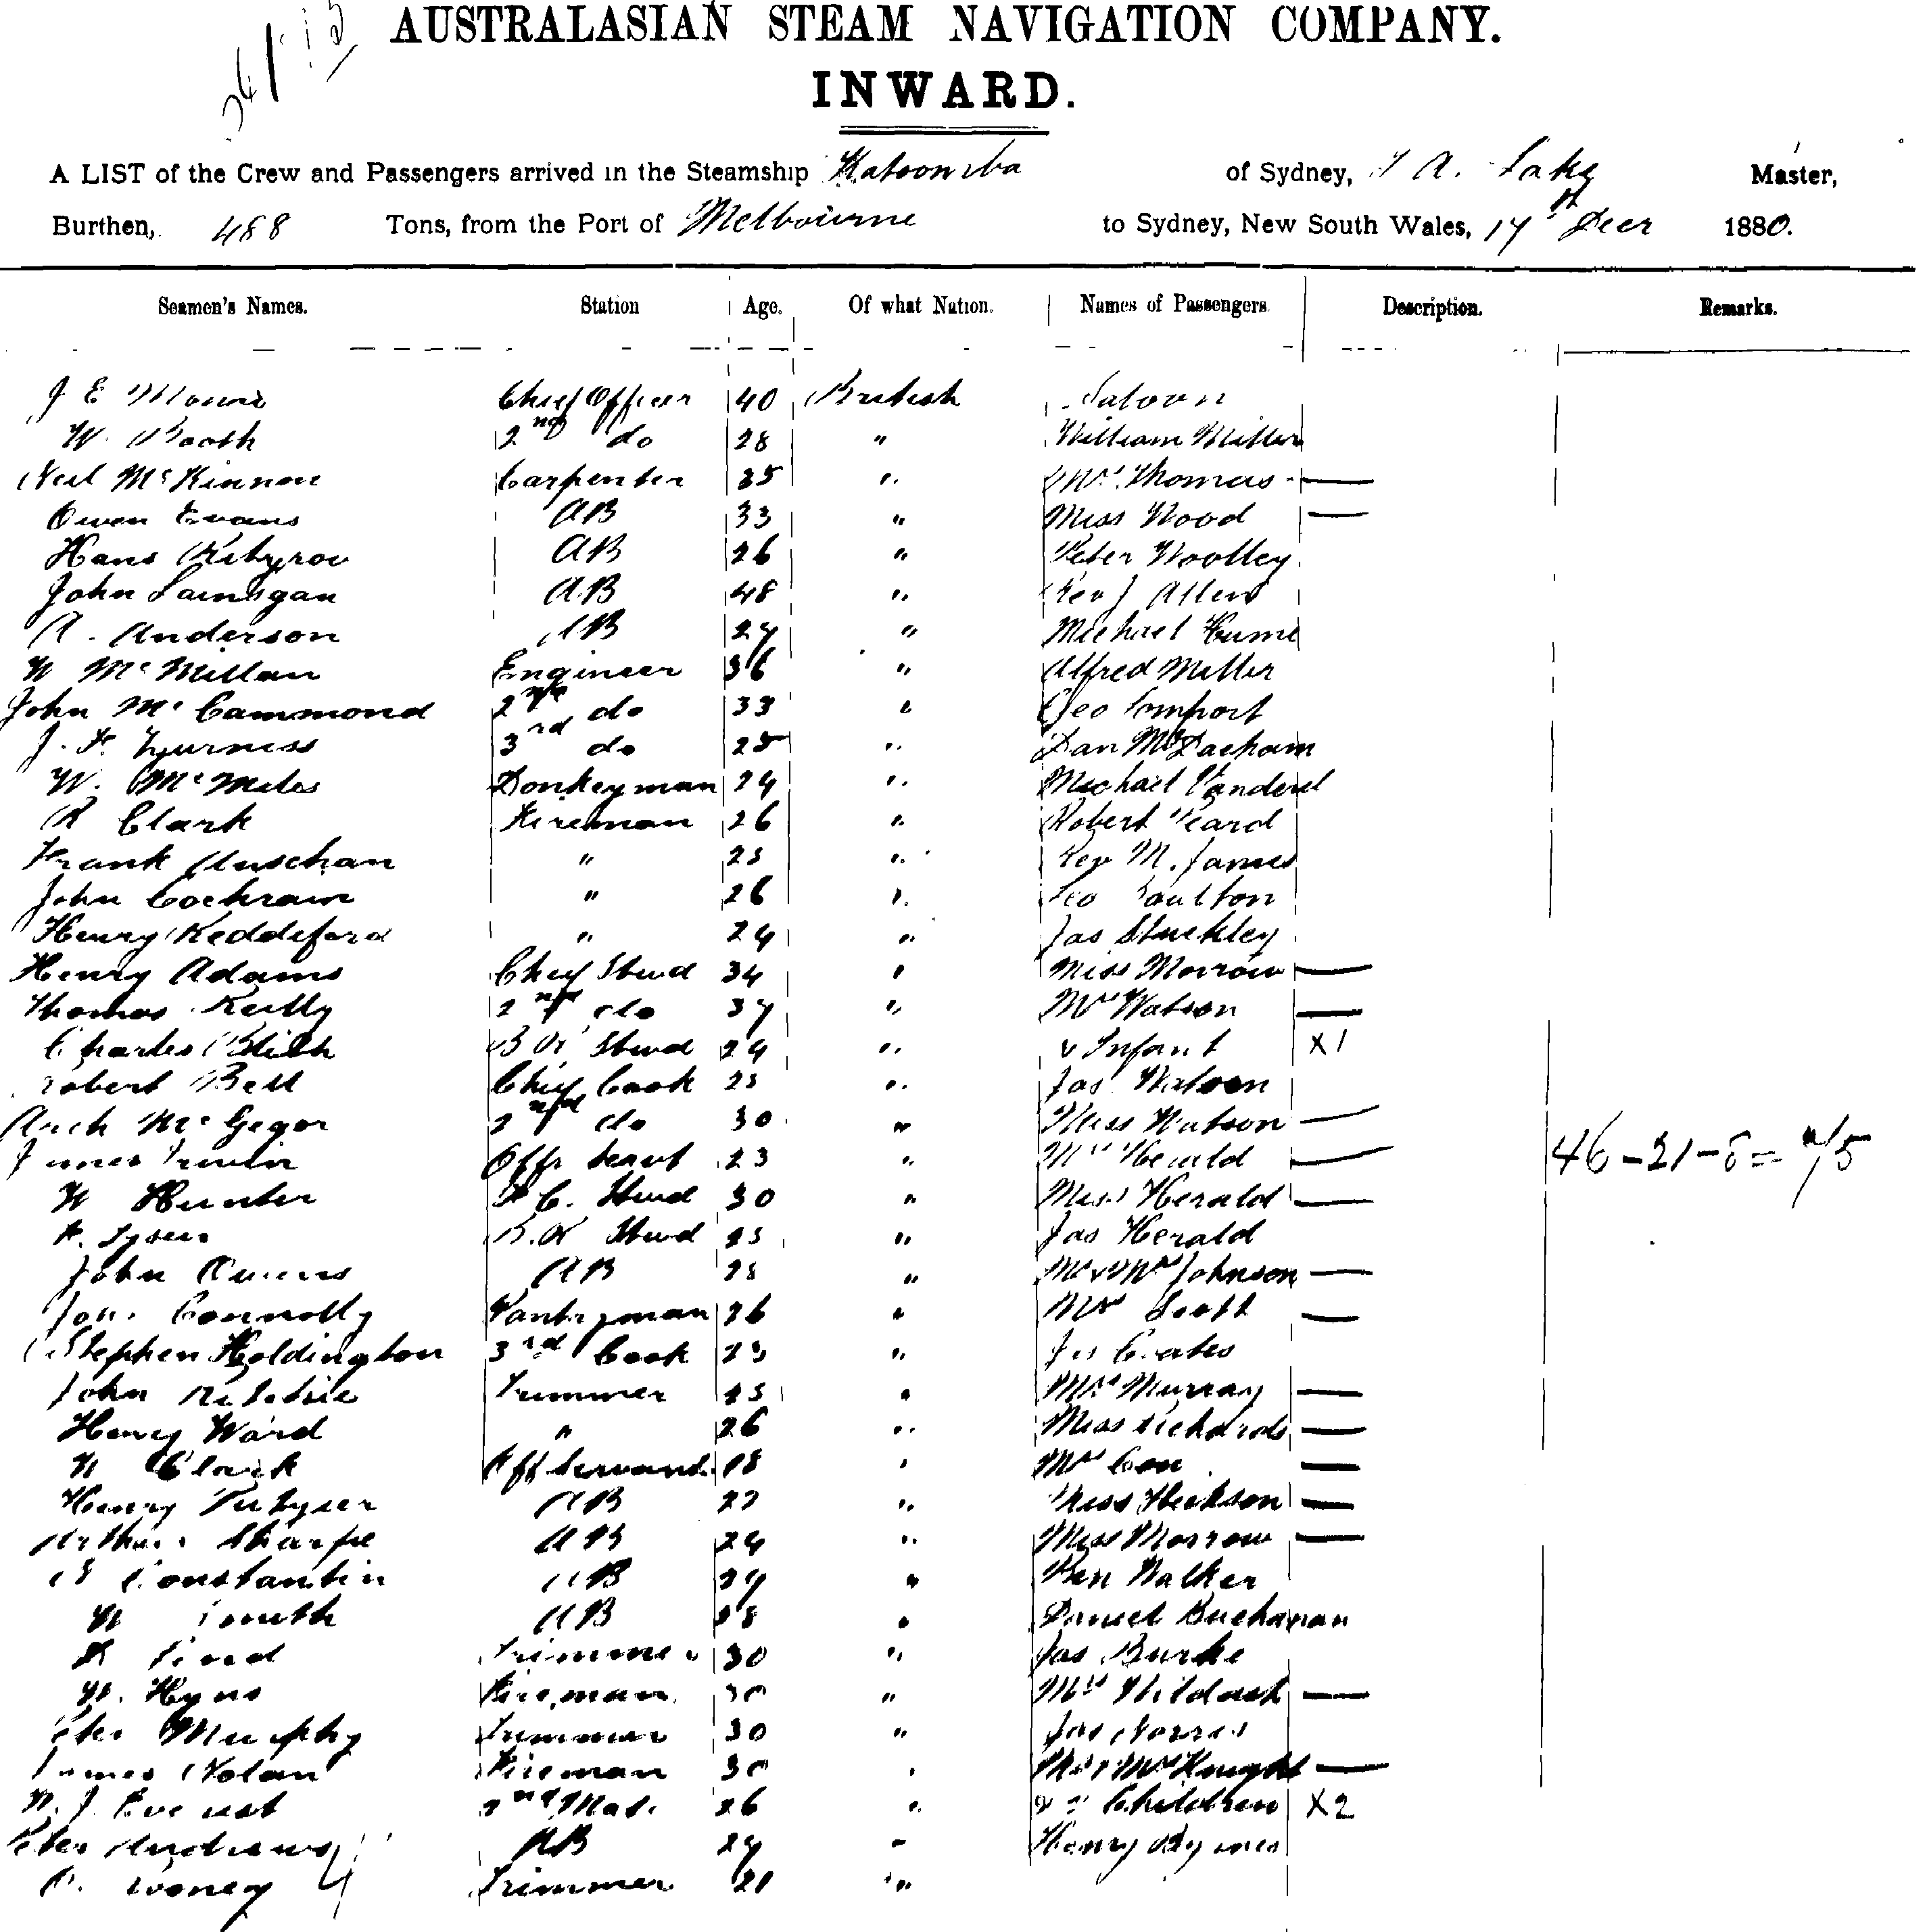 AUSTRALASIAN STEAM NAVIGATION COMPANY.
INWARD.
A LIST of the Crew and Passengers arrived in the Steamship Katoomba of Sydney, Master,
Burthen, 488 Tons, from the Port of Melbourne to Sydney, New South Wales, 17th Decr 1880.
Seamen's Names. Station Age. Of what Nation. Names of Passengers. Description. Remarks.
J E Chief Officer 40 British Saloon
W. Booth 2nd do 28 " William Miller
Neil McKinnon Carpenter 35 " Mrs Thomas —
Owen Evans AB 33 " Miss Wood —
Hans AB 26 " Peter Woolley
John AB 48 " Rev J Allen
A. Anderson AB 27 " Michael Hume
W McMillan Engineer 36 " Alfred Miller
John McCammond 2nd do 33 " Geo
J. F. Furness 3rd do 25 " Dan
W. McMiles Donkeyman 24 " Michael
R Clark Fireman 26 " Robert
Frank " 25 " Rev M. James
John Cochrain " 26 " Geo
Henry Keddeford " 24 " Jas Stuckley
Henry Adams Chief Stewd 34 " Miss Morrow —
Thomas Reilly 2nd do 37 " Mrs Watson —
Charles Stewd 24 " & Infant X1
Robert Bell Chief Cook 25 " Jas Watson
Arch McGegor 2nd do 30 " Miss Watson —
James Offr Servt 23 " Mrs Herald — 46-21-
W Hunter Stewd 30 " Miss Herald —
Stewd 25 " Jas Herald
John Owens AB 28 " Mr & Mrs Johnson —
Connolly Pantryman 26 " Mrs Scott —
Stephen Holdington 3rd Cook 23 " Coates
John Trimmer 25 " Mrs Murray —
Henry Ward " 26 " Miss Richards —
W Clark Off Servant 18 " Mrs —
Henry AB 22 " Miss Hickson —
Arthur Sharpe AB 24 " Miss Morrow —
Constantin AB 27 " Ben Walker
W AB 28 " Daniel Buchanan
Trimmer 30 " Jas Burke
W. Hyns Fireman 30 " Mrs Wildash —
Peter Murphy Trimmer 30 " Jas Norris
James Nolan Fireman 30 " Mr & Mrs Knight —
2nd Mate 26 " & 2 Children X2
Peter Andrews AB 27 " Henry Byrnes
Trimmer 21 "